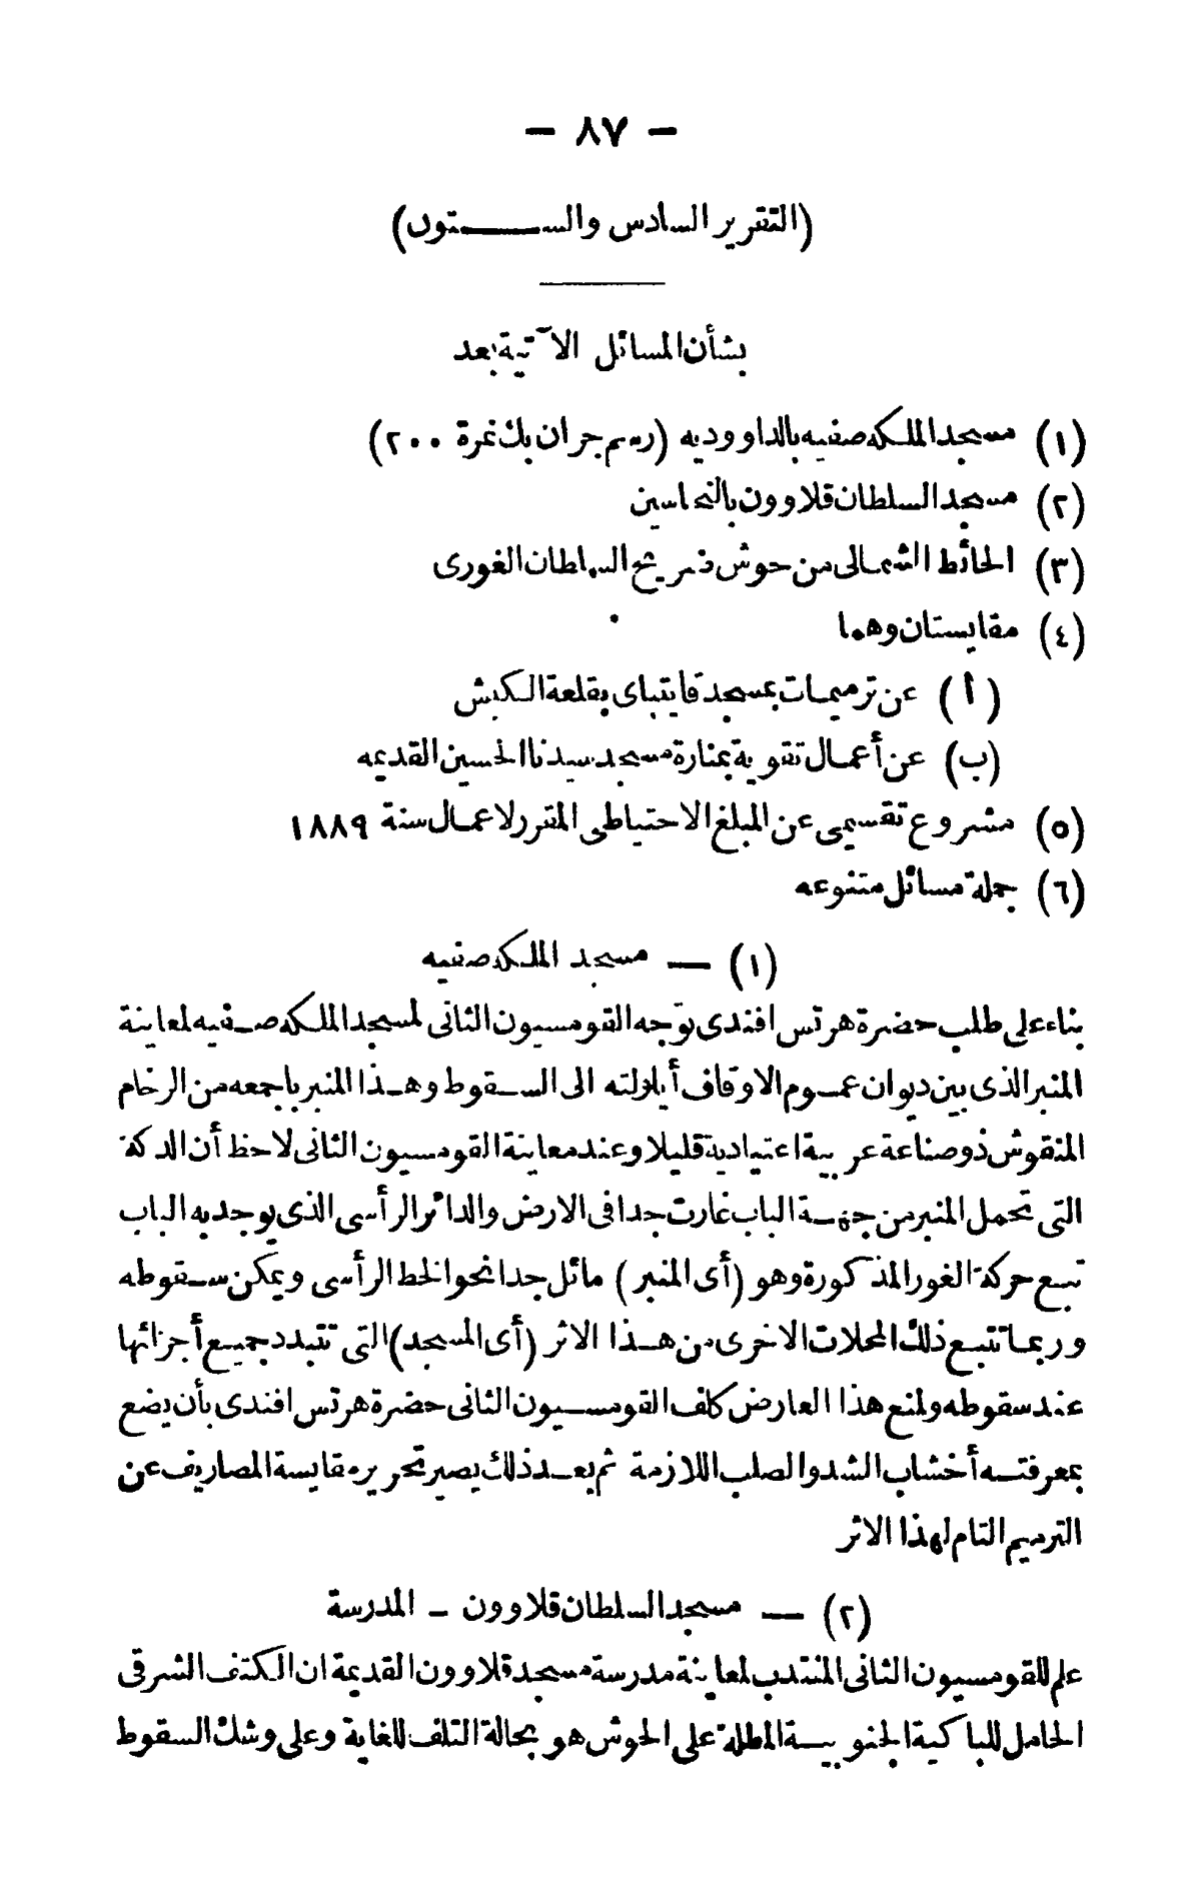 — ٨٧ —
(التقرير السادس والستون)
بشأن المسائل الآتية بعد
(١) مسجد الملكه صفيه بالداووديه (رسم جران بك نمرة ٢٠٠)
(٢) مسجد السلطان قلاوون بالنحاسين
(٣) الحائط الشمالى من حوش ضريح السلطان الغورى
(٤) مقايستان وهما
(أ) عن ترميمات بمسجد قايتباى بقلعة الكبش
(ب) عن أعمال تقوية بمنارة مسجد سيدنا الحسين القديمه
(٥) مشروع تقسيمى عن المبلغ الاحتياطى المقرر لاعمال سنة ١٨٨٩
(٦) جملة مسائل متنوعه
(١) — مسجد الملكه صفيه
بناء على طلب حضرة هرتس افندى توجه القومسيون الثانى لمسجد الملكه صفيه لمعاينة
المنبر الذى بين ديوان عموم الاوقاف أيلولته الى السقوط وهذا المنبر باجمعه من الرخام
المنقوش ذو صناعة عربية اعتيادية قليلا وعند معاينة القومسيون الثانى لاحظ أن الدكة
التى تحمل المنبر من جهة الباب غارت جدا فى الارض والدائر الرأسى الذى يوجد به الباب
تبع حركة الغور المذكورة وهو (أى المنبر) مائل جدا نحو الخط الرأسى ويمكن سقوطه
وربما تتبع ذلك المحلات الاخرى من هذا الاثر (أى المسجد) التى تتبدد جميع أجزائها
عند سقوطه ولمنع هذا العارض كلف القومسيون الثانى حضرة هرتس افندى بأن يضع
بمعرفته أخشاب الشد والصلب اللازمة ثم بعد ذلك يصير تحرير مقايسة المصاريف عن
الترميم التام لهذا الاثر
(٢) — مسجد السلطان قلاوون - المدرسة
علم للقومسيون الثانى المنتدب لمعاينة مدرسة مسجد قلاوون القديمة ان الكتف الشرقى
الحامل للباكية الجنوبية المطلة على الحوش هو بحالة التلف للغاية وعلى وشك السقوط